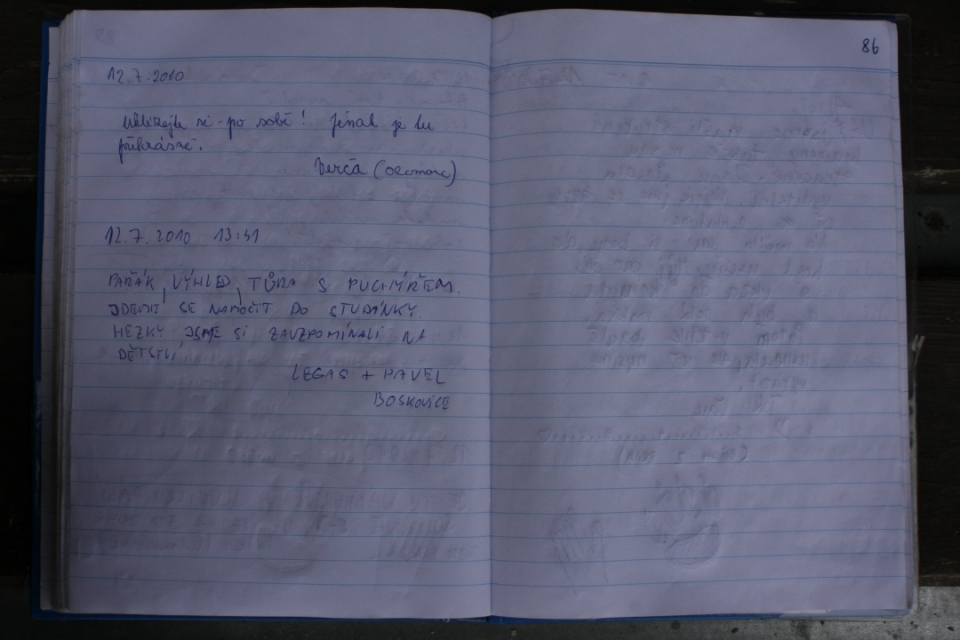 86
12.7.2010
Uklízejte si po sobě! Jinak je tu
překrásně.
Verča (Olomouc)
12.7.2010 13:41
PAŘÁK, VÝHLED, TŮRA S PUCHÝŘEM.
JDEME SE NAMOČIT DO STUDÁNKY.
HEZKY JSME SI ZAVZPOMÍNALI NA
DĚTSTVÍ
LEGAS + PAVEL
BOSKOVICE